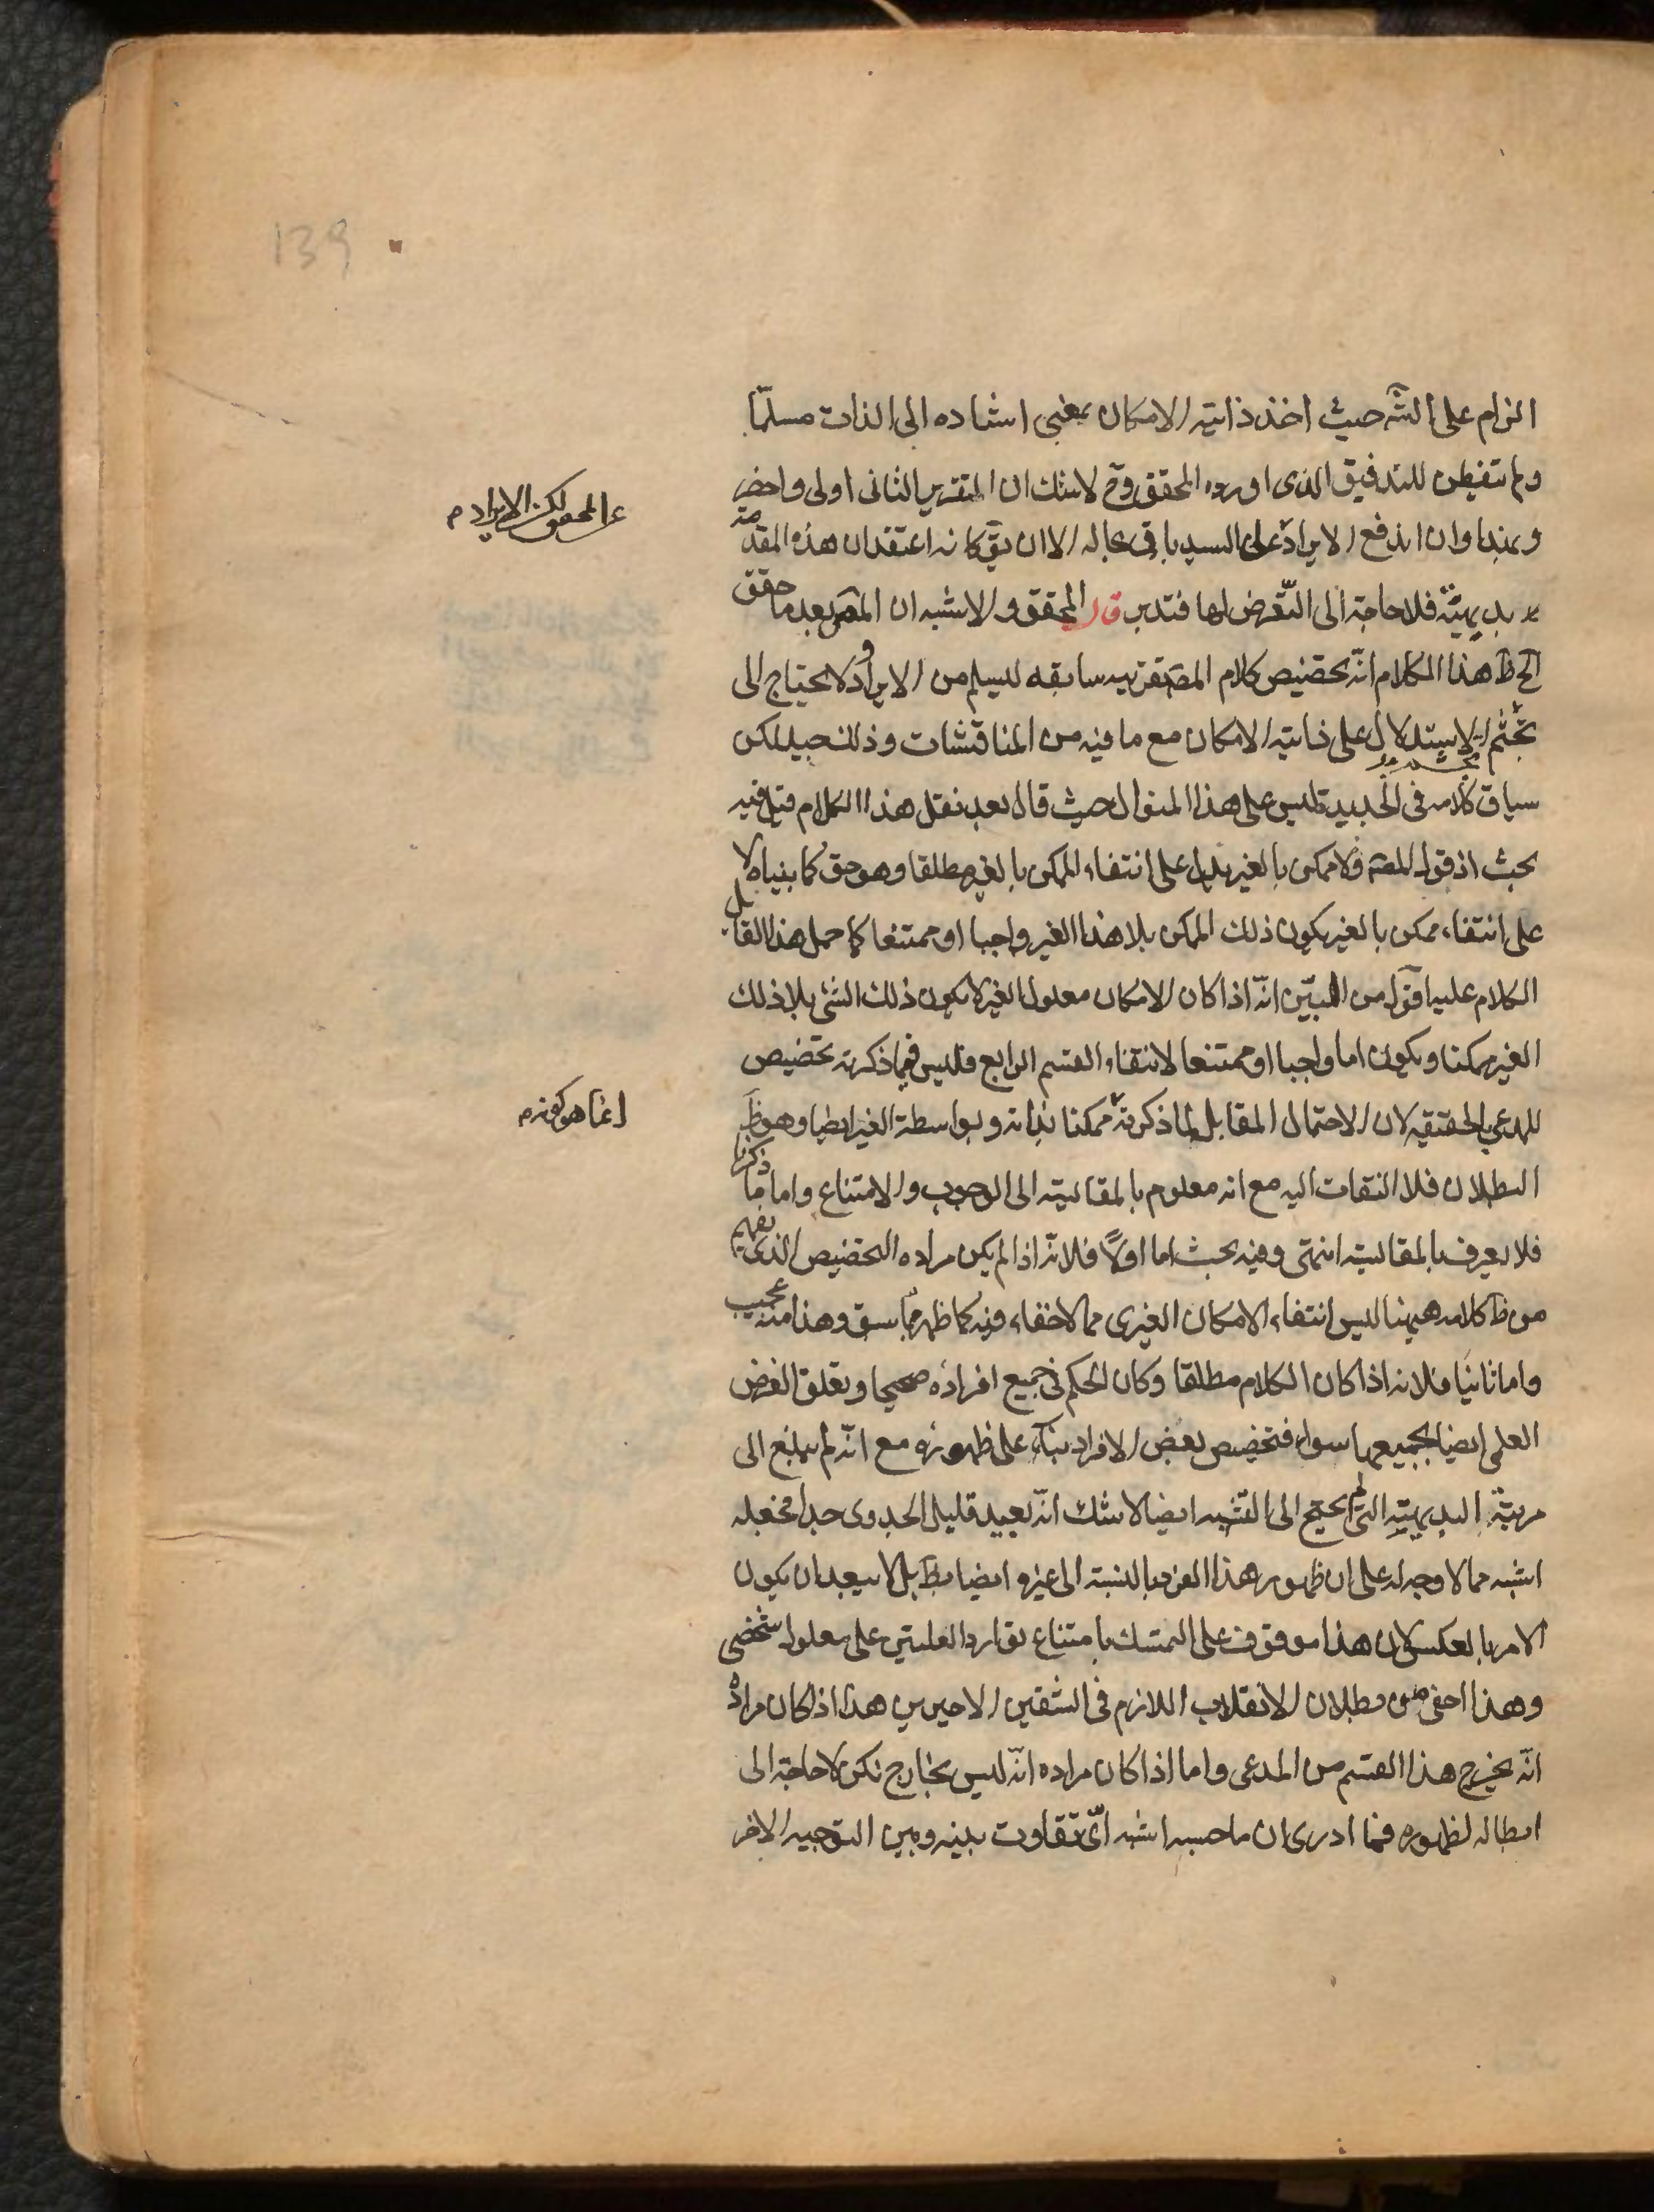 139
الزام على الشه حيث اخذ ذاتية الامكان بمعنى اسناده الى الذات مسلّما
ولم يتفطن للتدقيق الذى اورده المحقق وح لا شك ان التقرير الثانى اولى واخصر
عن المحقق لكن الايراد م
وبهذا وان اندفع الايراد على السيد باقى بحاله الا ان يقّ كانه اعتقد ان هذه المقدمة
بديهيّة فلا حاجة الى التّعرض لها فتدبر قال المحقق والاشبه ان المصّ بعد ما حقق
الحاظ هذا الكلام انّه تخصيص كلام المصّ بقرينه سابقه ليسلم من الايراد ولا يحتاج الى
تجشّم الاستدلال على ذاتية الامكان مع ما فيه من المناقشات وذلك جيد لكن
تجشم
سياق كلامه فى الجديدة ليس على هذا المنوال حيث قال بعد نقل هذا الكلام قيل فيه
بحث اذ قول المصّ ولا ممكن بالغير يدل على انتفاء الممكن بالغير مطلقا وهو حق كما بيناه لا
على انتفاء ممكن بالغير يكون ذلك الممكن بلا هذا الغير واجبا او ممتنعا كما حمل هذا القائل
الكلام عليه اقول من البيّن انّه اذا كان الامكان معلول الغير لا يكون ذلك الشئ بلا ذلك
الغير ممكنا ويكون اما واجبا او ممتنعا لانتفاء القسم الرابع فليس فيما ذكرته تخصيص
للمدعى بالحقيقه لان الاحتمال المقابل لما ذكرته ممكنا بذاته وبواسطة الغير ايضا وهو ظَ
انما هو كونه م
البطلان فلا التفات اليه مع انه معلوم بالمقايسة الى الوجوب والامتناع واما ما ذكرنا
فلا يعرف بالمقايسة انتهى وفيه بحث اما اولاً فلانّه اذا لم يكن مراده التخصيص الذى يفهم
من ظَ كلامه هيهنا ليس انتفاء الامكان الغيرى مما لا خفاء فيه كما ظهر مما سبق وهذا منه عجيب
واما ثانيَا فلانه اذا كان الكلام مطلقا وكان الحكم فى جميع افراده صحيحا وتعلق الغرض
العلمى ايضا بجميعها سواء فتخصيص بعض الافراد بناء على ظهوره مع انّه لم يبلغ الى
مرتبة البديهيّة التى لم يحتج الى التنّبيه ايضا لا شك انّه بعيد قليل الجدوى جدا فجعله
اشبه مما لا وجه له على ان ظهور هذا الفرد بالنسبة الى غيره ايضا بطَ بل لا يبعد ان يكون
الامر بالعكس لان هذا موقوف على التمسك بامتناع توارد العلتين على معلول شخصى
وهذا اخفى من بطلان الانقلاب اللازم فى الشقين الاخيرين هذا اذا كان مراده
انّه يخرج هذا القسم من المدعى واما اذا كان مراده انّه ليس بخارج لكن لا حاجة الى
ابطاله لظهوره فما ادرى ان ما حسبه اشبه اىّ تفاوت بينه وبين التوجيه الاخر